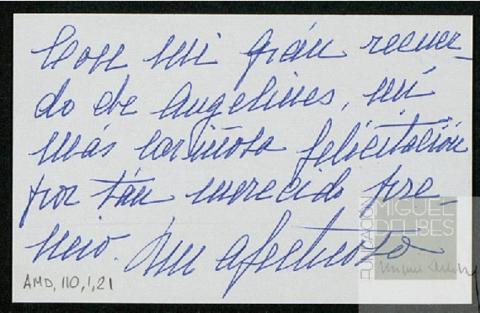 Con mi grán recuer-
do de Angelines, mi
más cariñosa felicitación
por tán merecido pre-
mio. Un afectuoso
AMD, 110, 1, 21
FUNDACIÓN
MIGUEL
DELIBES